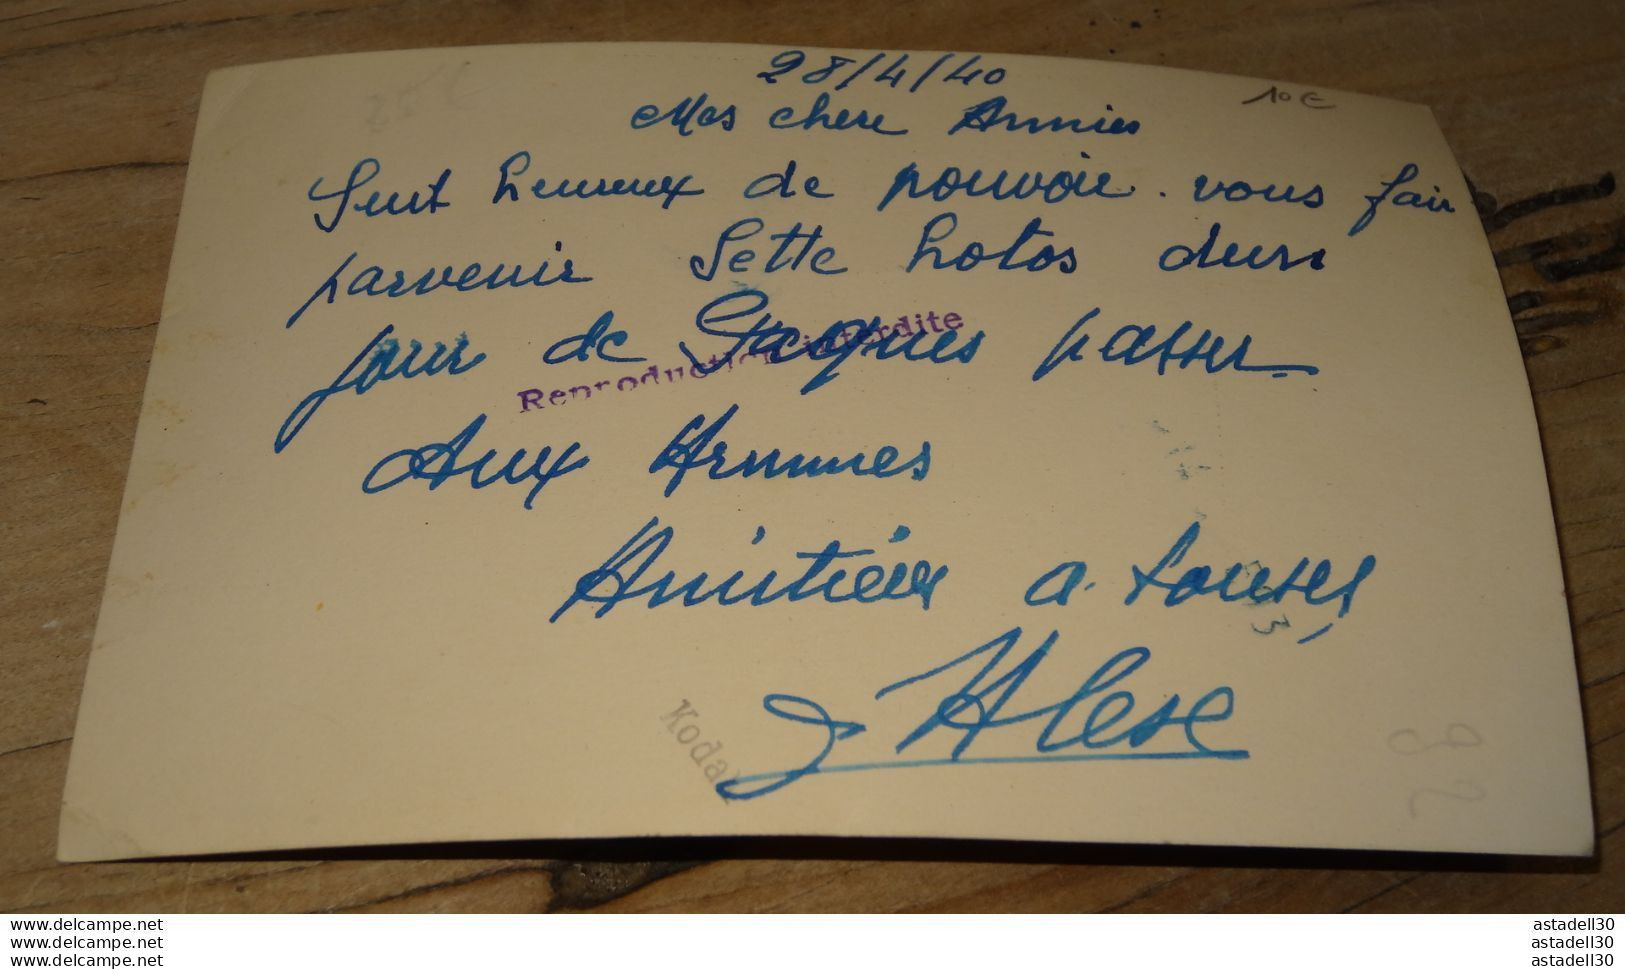 28/4/40
10€
Mes chere Amies
Suit heureux de pouvoir vous fair
parvenir Sette hotos dun
jour de Pacques passer
Reproduction interdite
Aux Armmes
Amitiées a toutes,
Kodak
92
www.delcampe.net astadell30
www.delcampe.net astadell30
www.delcampe.net astadell30